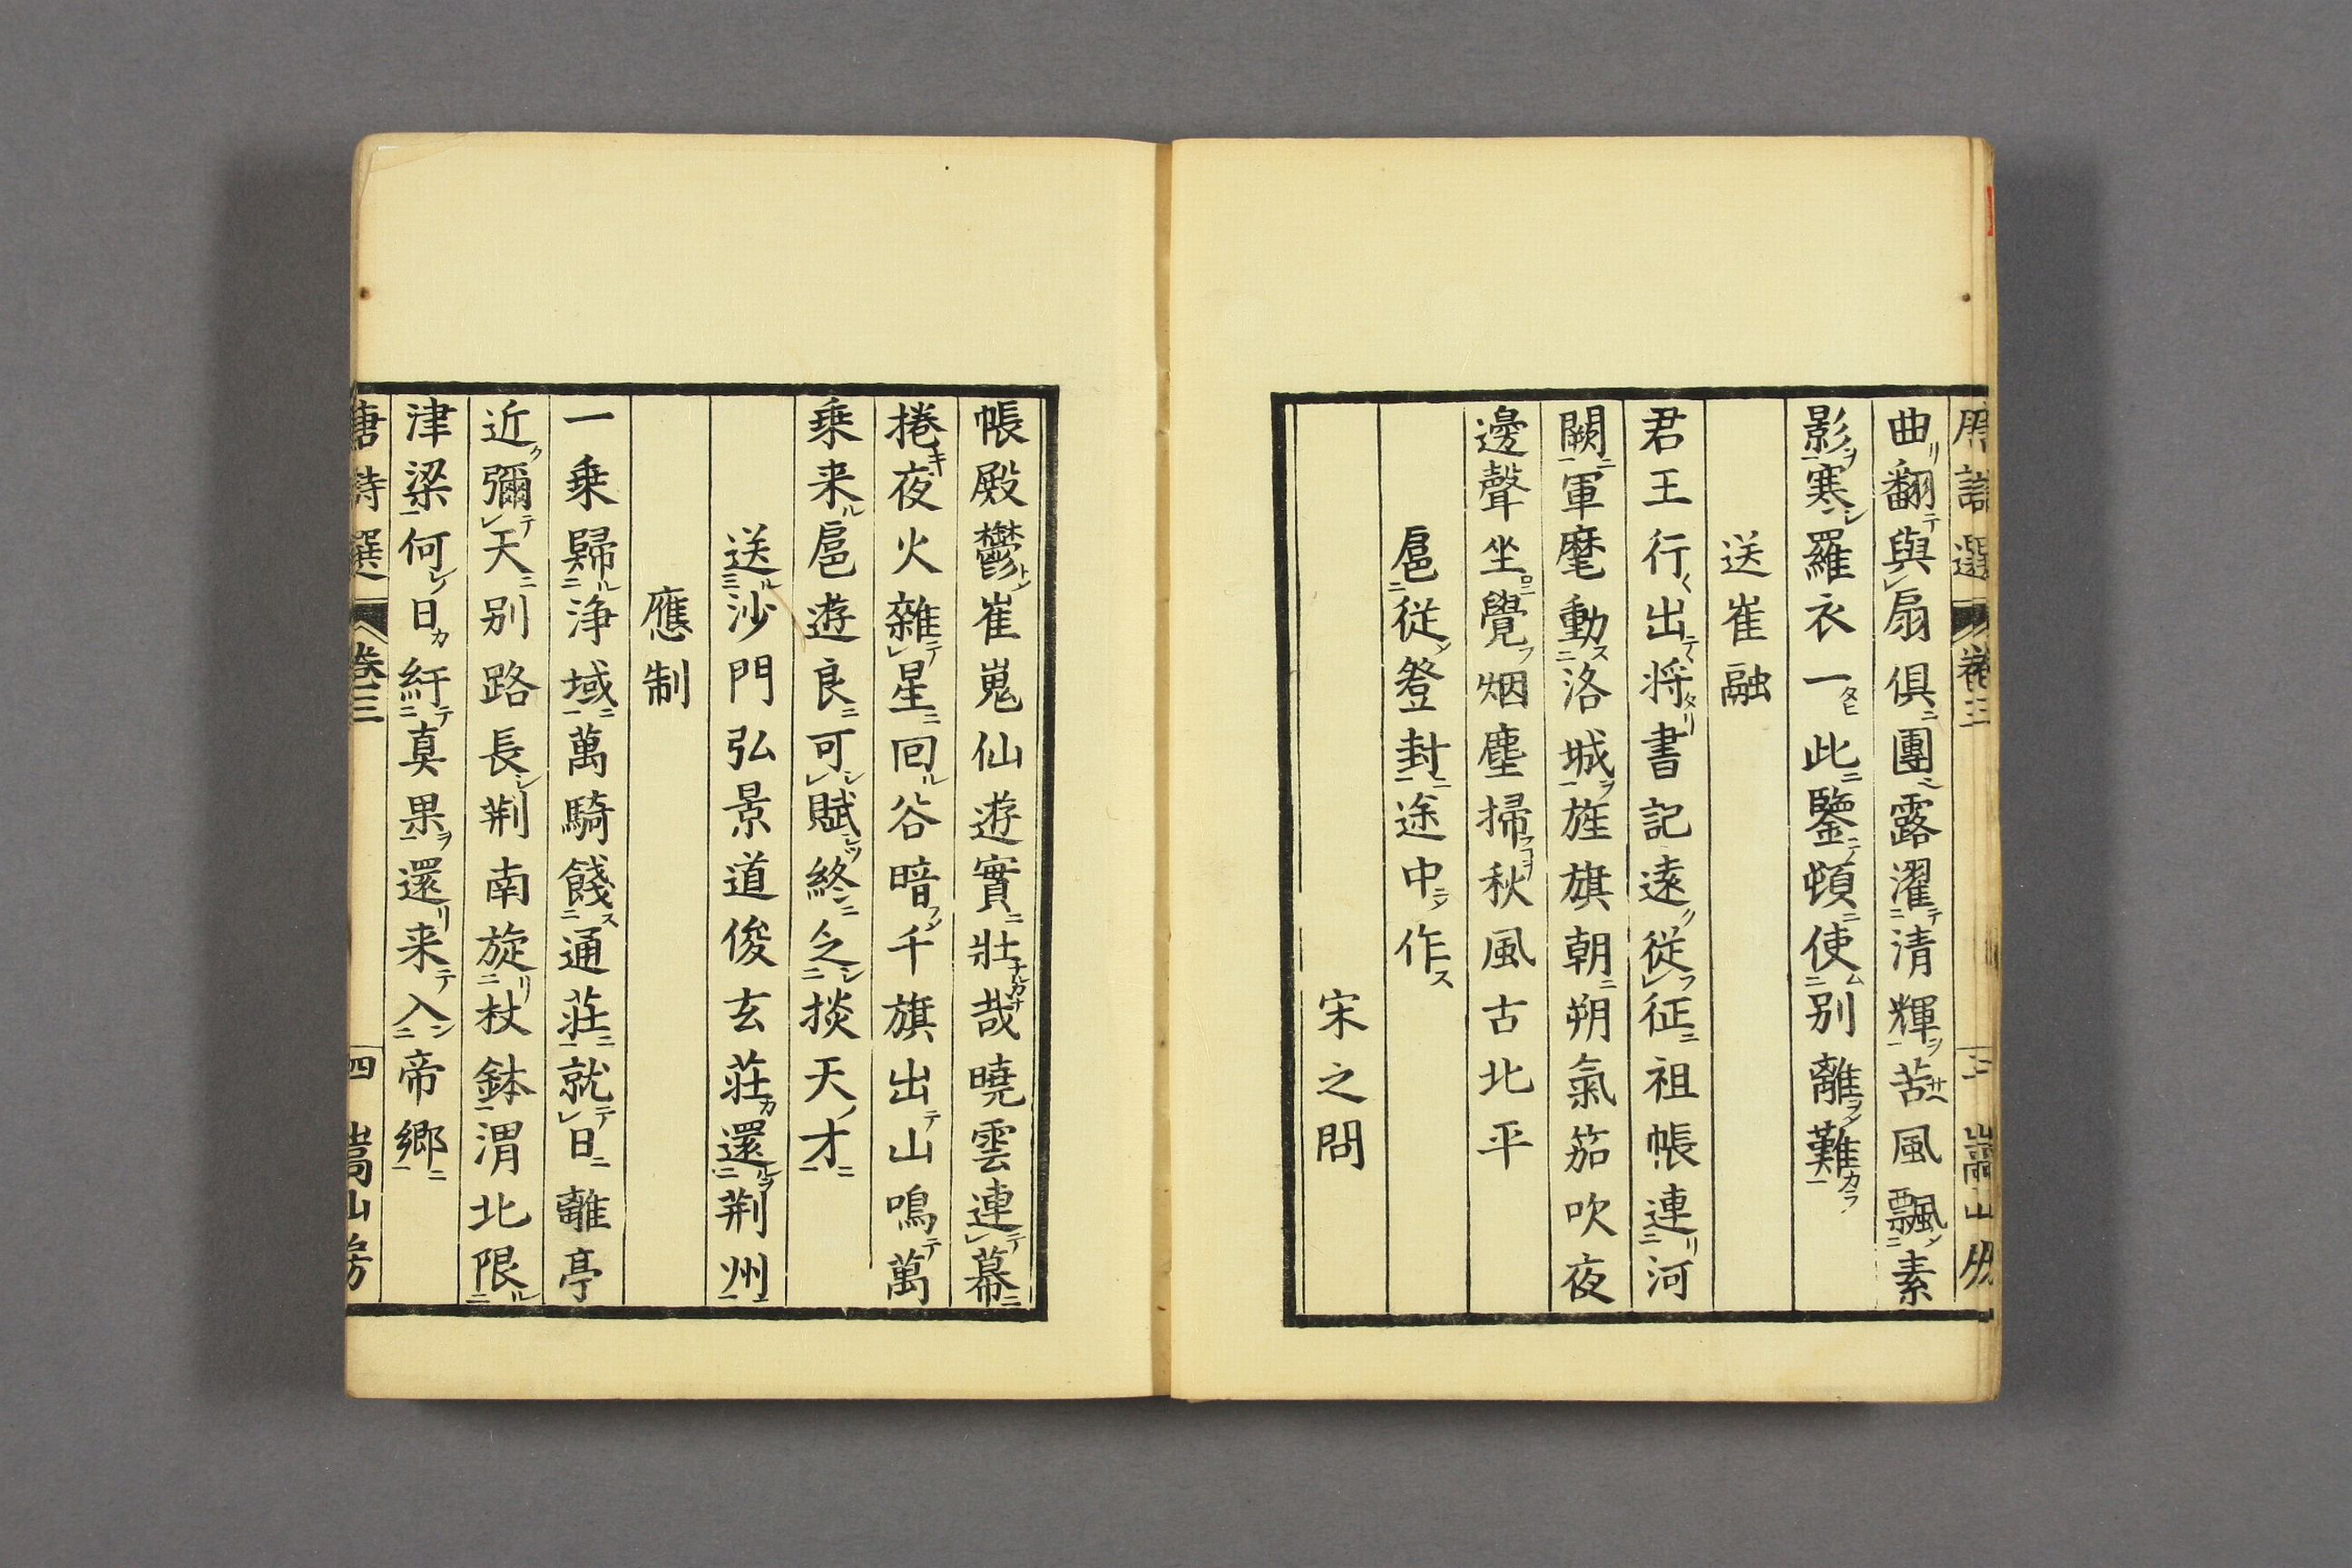 唐詩選 卷三 三 嵩山房
曲翻與扇俱團露濯清輝苦風飄素
影寒羅衣一此鑒頓使別離難
送崔融
君王行出将書記遠從征祖帳連河
闕軍麾動洛城旌旗朝朔氣笳吹夜
邊聲坐覺烟塵掃秋風古北平
扈從登封途中作
宋之問
帳殿鬱崔嵬仙遊實壯哉曉雲連幕
捲夜火雜星回谷暗千旗出山鳴萬
乗来扈遊良可賦終乏掞天才
送沙門弘景道俊玄莊還荆州
應制
一乗歸浄域萬騎餞通莊就日離亭
近彌天別路長荆南旋杖鉢渭北限
津梁何日紆真果還来入帝郷
唐詩選 卷三 四 嵩山房